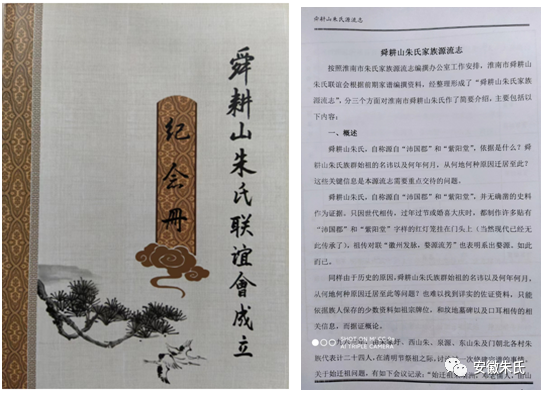 舜耕山朱氏联谊會成立
纪念册
舜耕山朱氏源流志
舜耕山朱氏家族源流志
按照淮南市朱氏家族源流志编撰办公室工作安排，淮南市舜耕山
朱氏联谊会根据前期家谱编撰资料，经整理形成了“舜耕山朱氏家族
源流志”，分三个方面对淮南市舜耕山朱氏作了简要介绍，主要包括以
下内容：
一、概述
舜耕山朱氏，自称源自“沛国郡”和“紫阳堂”，依据是什么？舜
耕山朱氏族群始祖的名讳以及何年何月，从何地何种原因迁居至此？
这些关键信息是本源流志需要重点交待的问题。
舜耕山朱氏，自称源自“沛国郡”和“紫阳堂”，并无确凿的史料
作为证据。只因世代相传，过年过节或婚喜大庆时，都制作许多贴有
“沛国郡”和“紫阳堂”字样的红灯笼挂在门头上（当然现代已经无
此传承了），祖传对联“徽州发脉，婺源流芳”也表明系出婺源。如此
而已。
同样由于历史的原因，舜耕山朱氏族群始祖的名讳以及何年何月、
从何地何种原因迁居至此等问题？也难以找到详实的佐证资料，只能
依据族人保存的少数资料如祖宗牌位，和坟地墓碑以及口耳相传的相
关信息，而据证概论。
西山朱、泉源、东山朱及门朝北各村朱
族代表计二十四人，在清明节祭祖之际，
关于始迁祖问题，有如下会议记录：“始迁祖
SHOT ON MI CC 9
AI TRIPLE CAMERA
安徽朱氏